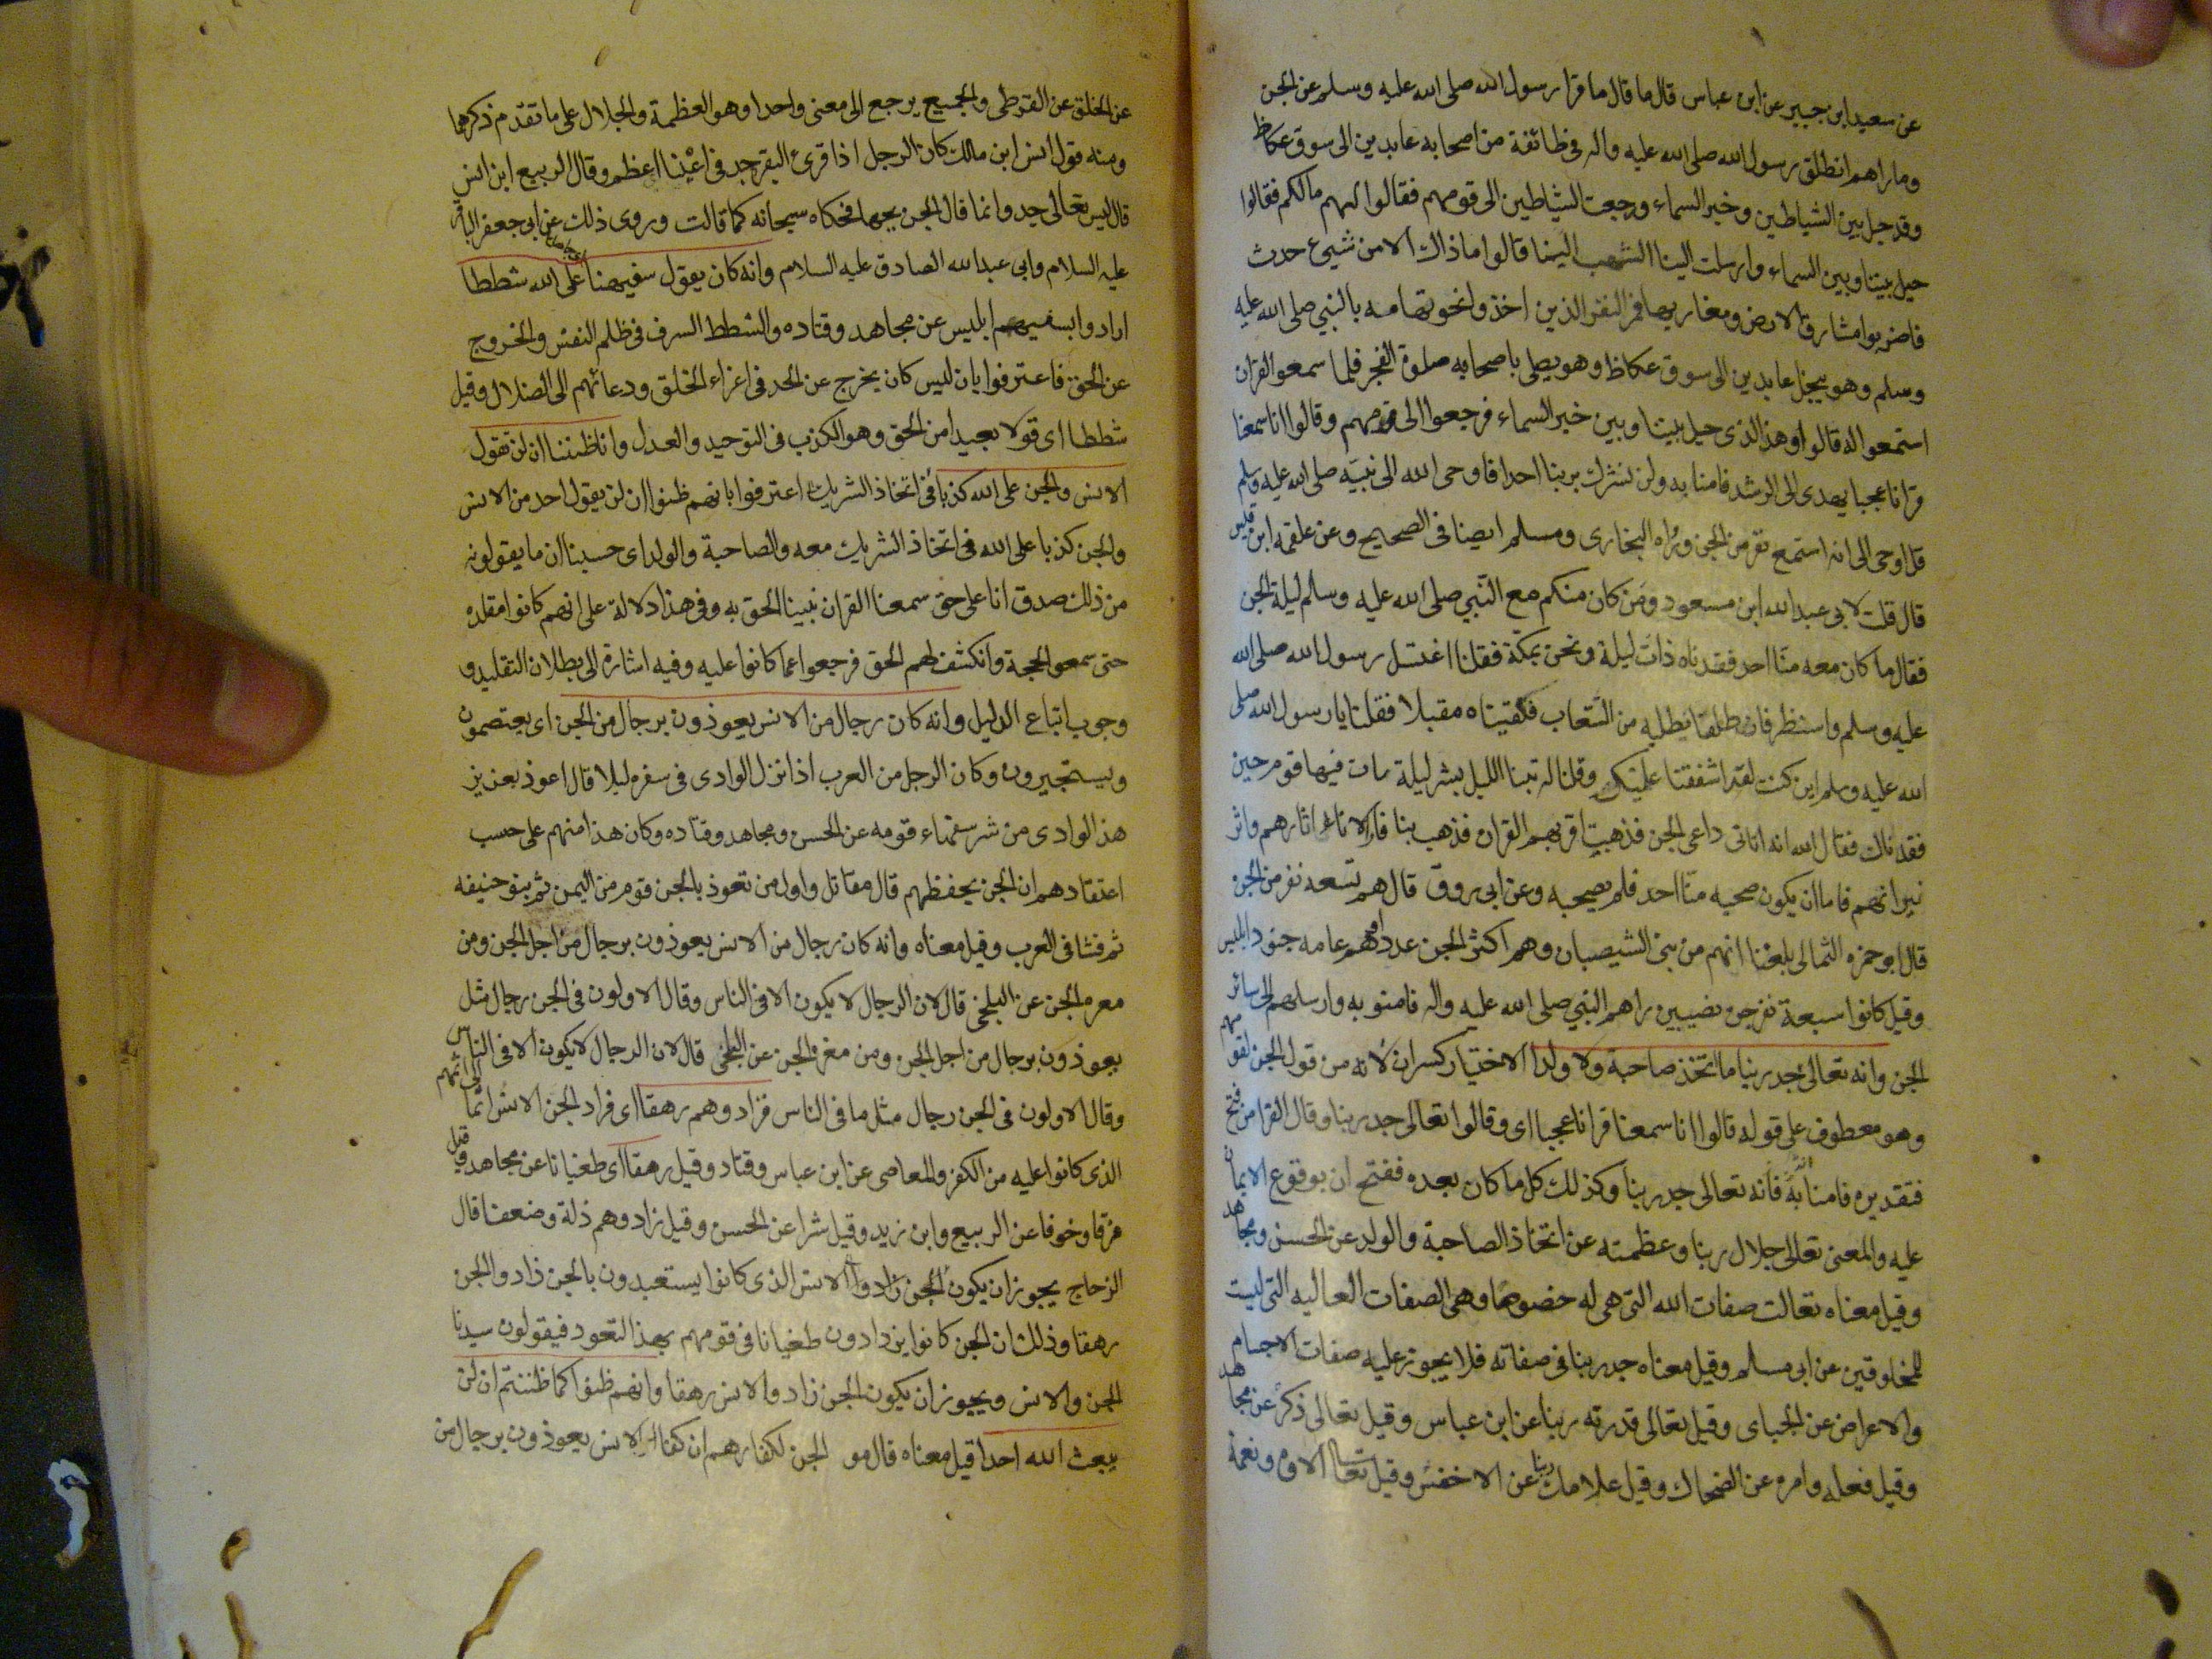 عن سعيد ابن جبير عن ابن عباس قال ما قال ما قرا رسول الله صلى الله عليه وسلم عن الجن
وما راهم انطلق رسول الله صلى الله عليه واله فى طائفة من اصحابه عابدين الى سوق عكاظ
وقد حيل بين الشياطين وخبر السماء ورجعت الشياطين الى قومهم فقالوا لهم ما لكم فقالوا
حيل بيننا وبين السماء وارسلت الينا الشهب قالوا ما ذاك الا من شيئ حدث
فاضربوا مشارق الارض ومغاربها فمر النفر الذين اخذوا نحو تهامه بالنبي صلى الله عليه
وسلم وهو بنخل عابدين الى سوق عكاظ وهو يصلى باصحابه صلوة الفجر فلما سمعوا القران
استمعوا له قالوا وهذا الذى حيل بيننا وبين خبر السماء فرجعوا الى قومهم وقالوا انا سمعنا
قرانا عجبا يهدى الى الرشد فامنا به ولن نشرك بربنا احدا فاوحى الله الى نبيه صلى الله عليه وسلم
قل اوحى الى انه استمع نفر من الجن ورواه البخارى ومسلم ايضا فى الصحيح وعن علقمه ابن قيس
قال قلت لابى عبد الله ابن مسعود ومن كان منكم مع النبي صلى الله عليه وسلم ليلة الجن
فقال ما كان معه منا احد فقدناه ذات ليلة ونحن بمكة فقلنا اغتيل رسول الله صلى الله
عليه وسلم واستطير فانطلقنا نطلبه من الشعاب فلقيناه مقبلا فقلنا يا رسول الله صلى
الله عليه وسلم اين كنت لقد اشفقنا عليك وقلنا له بتنا الليل بشر ليلة بات فيها قوم حين
فقدناك فقال الله انه اتانى داعى الجن فذهبت اقربهم القران فذهب بنا فارانا اثارهم واثر
نيرانهم فاما ان يكون صحبه منا احد فلم يصحبه وعن ابى روق قال هم تسعه نفر من الجن
قال ابو حمزه الثمالى بلغنا انهم من بنى الشيصبان وهم اكثر الجن عددا وهم عامه جنود ابليس
وقيل كانوا سبعة نفر من نصيبين راهم النبي صلى الله عليه واله فامنو به وارسلهم الى سائر
الجن وانه تعالى جد ربنا ما اتخذ صاحبة ولا ولدا الاختيار كسران لانه من قول الجن لقومهم
وهو معطوف على قوله قالوا انا سمعنا قرانا عجبا اى وقالوا تعالى جد ربنا وقال الفرا من فتح
فتقديره فامنا به فانه تعالى جد ربنا وكذلك كل ما كان بعده ففتح ان بوقوع الايمان
عليه والمعنى تعالى جلال ربنا وعظمته عن اتخاذ الصاحبة والولد عن الحسن ومجاهد
وقيل معناه تعالت صفات الله التى هى له خصوصا وهى الصفات العاليه التى ليست
للمخلوقين عن ابى مسلم وقيل معناه جد ربنا فى صفاته فلا يجوز عليه صفات الاجسام
والاعراض عن الجباى وقيل تعالى قدرته ربنا عن ابن عباس وقيل تعالى ذكره عن مجاهد
وقيل فعله وامره عن الضحاك وقيل علا ملك ربنا عن الاخفش وقيل تعالى الاوه ونعمة
عن الخلق عن القرطى والجميع يرجع الى معنى واحد وهو العظمة والجلال على ما تقدم ذكرهما
ومنه قول انس ابن مالك كان الرجل اذا قرئ البقر جد فى اعيننا اعظم وقال الربيع ابن انس
قال ليس تعالى جد وانما قال الجن بجها فحكاه سبحانه كما قالت وروى ذلك عن ابى جعفر الباقر
عليه السلام وابى عبد الله الصادق عليه السلام وانه كان يقول سفيهنا على الله شططا
ارادوا بسفيههم ابليس عن مجاهد وقتاده والشطط السرف فى ظلم النفس والخروج
عن الحق فاعترفوا بان ابليس كان يخرج عن الحد فى اغراء الخلق ودعائهم الى الضلال وقيل
شططا اى قولا بعيدا من الحق وهو الكذب فى التوحيد والعدل وانا ظننا ان لن تقول
الانس والجن على الله كذبا فى اتخاذ الشريك اعترفوا بانهم ظنوا ان لن يقول احد من الانس
والجن كذبا على الله فى اتخاذ الشريك معه والصاحبة والولد اى حسبنا ان ما يقولونه
من ذلك صدق انا على حتى سمعنا القران نبينا الحق به وفى هذا دلالة على انهم كانوا مقلده
حتى سمعوا الحجة وانكشف لهم الحق فرجعوا عما كانوا عليه وفيه اشارة الى بطلان التقليد و
وجوب اتباع الدليل وانه كان رجال من الانس يعوذون برجال من الجن اى يعتصمون
ويستجيرون وكان الرجل من العرب اذا نزل الوادى فى سفره ليلا قال اعوذ بعزيز
هذا الوادى من شر سفهاء قومه عن الحسن ومجاهد وقتاده وكان هذا منهم على حسب
اعتقادهم ان الجن يحفظهم قال مقاتل واول من تعوذ بالجن قوم من اليمن ثم بنو حنيفه
ثم فشا فى العرب وقيل معناه وانه كان رجال من الانس يعوذون برجال من اجل الجن ومن
معره الجن عن البلخى قال لان الرجال لا يكون الا فى الناس وقال الاولون فى الجن رجال مثل
يعوذون برجال من اجل الجن ومن معرة الجن عن البلخى قال لان الرجال لا يكون الا فى الناس
وقال الاولون فى الجن رجال مثل ما فى الناس فزادوهم رهقا اى فزاد الجن الانس اثما الى اثمهم
الذى كانوا عليه من الكفر والمعاصى عن ابن عباس وقتاد وقيل رهقا اى طغيانا عن مجاهد وقيل
فرقا وخوفا عن الربيع وابن زيد وقيل شرا عن الحسن وقيل زادوهم ذلة وضعفا قال
الزجاج يجوز ان يكون الجن زادوا الانس الذى كانوا يستعيدون بالجن زادوا الجن
رهقا وذلك ان الجن كانوا يزدادون طغيانا فى قومهم بهذا التعود فيقولون سيدنا
الجن والانس ويجوز ان يكون الجن زادوا الانس رهقا وانهم ظنوا كما ظننتم ان لن
يبعث الله احدا قيل معناه قال مو الجن لكفارهم ان كفار الانس يعوذون برجال من